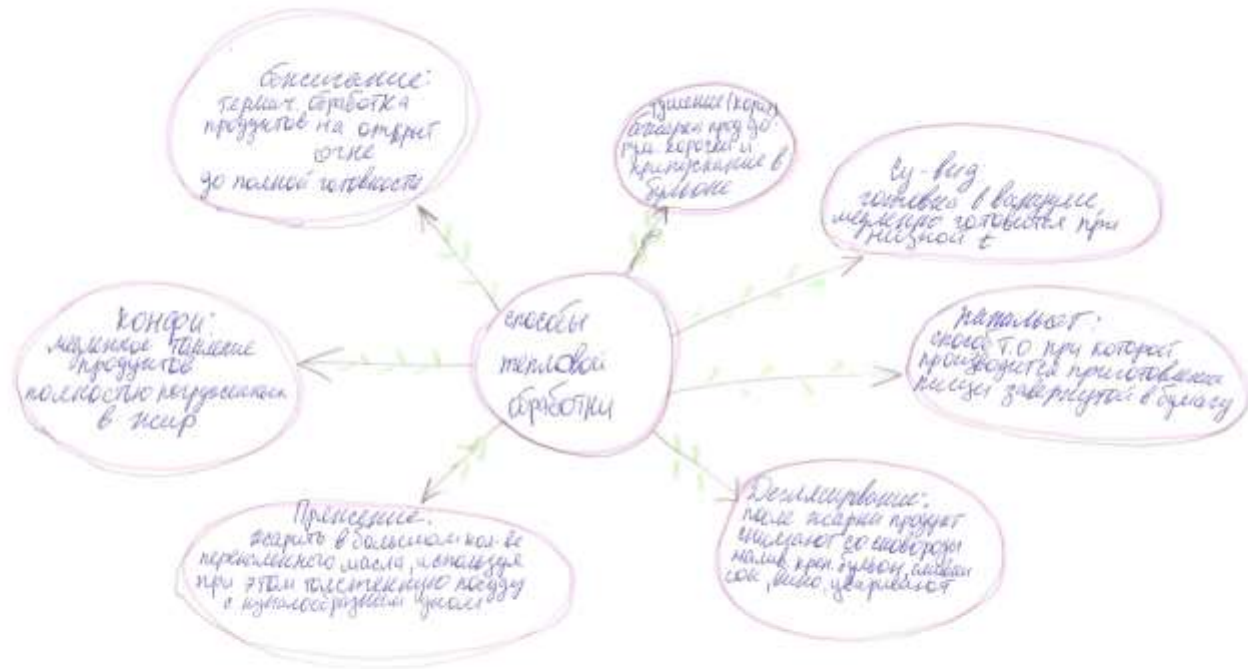 способы
тепловой
обработки
термич. обработка
продуктов на открыт
огне
до полной готовности
обжарки прод до
рум корочки и
припускание в
бульоне
Су-вид
готовка в вакууме
медленно готовится при
низкой t
папильот:
способ Т.О при которой
производится приготовление
пищи завернутой в бумагу
Деглясирование:
после жарки продукт
снимают со сковороды
налив. креп. бульон, сливки
сок, вино, уваривают
Пряжение.
жарить в большом кол-ве
перекаленного масла, используя
при этом толстенную посуду
с куполообразным дном
Конфи:
медленное томление
продуктов
полностью погруженных
в жир